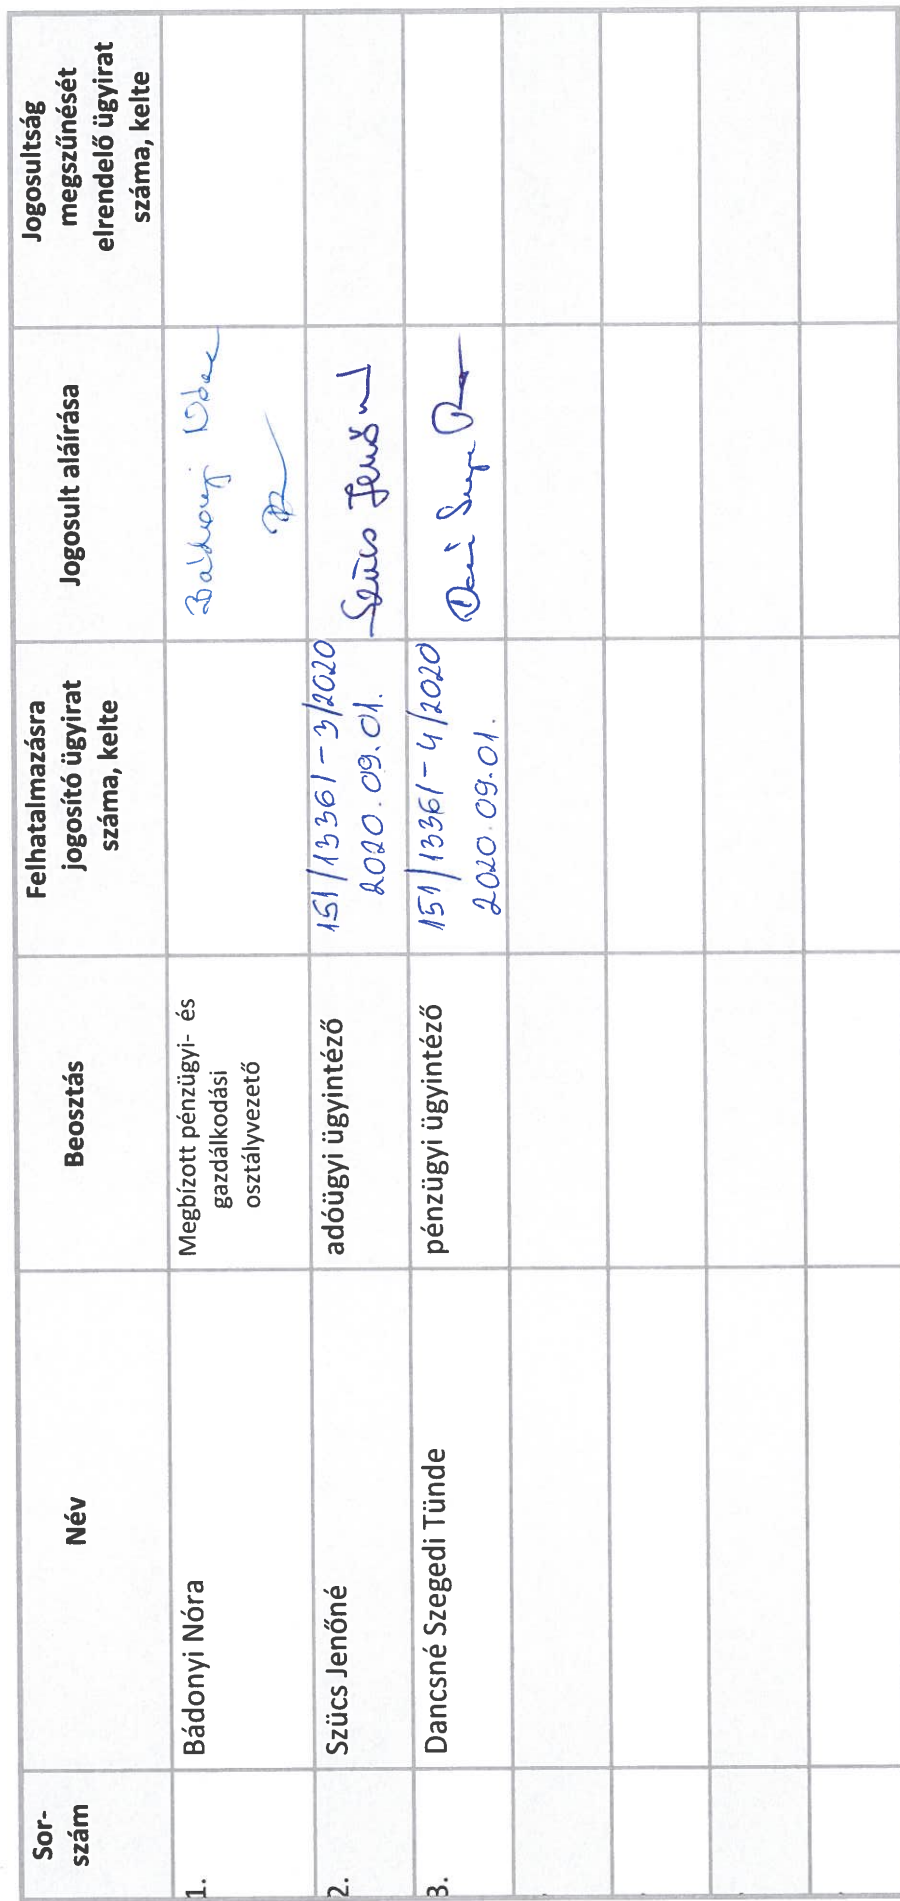 Sor-
szám
Név
Beosztás
Felhatalmazásra
jogosító ügyirat
száma, kelte
Jogosult aláírása
Jogosultság
megszűnését
elrendelő ügyirat
száma, kelte
1.
Bádonyi Nóra
Megbízott pénzügyi- és
gazdálkodási
osztályvezető
2.
Szücs Jenőné
adóügyi ügyintéző
151/13361-3/2020
2020.09.01.
Szücs Jenőné
3.
Dancsné Szegedi Tünde
pénzügyi ügyintéző
151/13361-4/2020
2020.09.01.